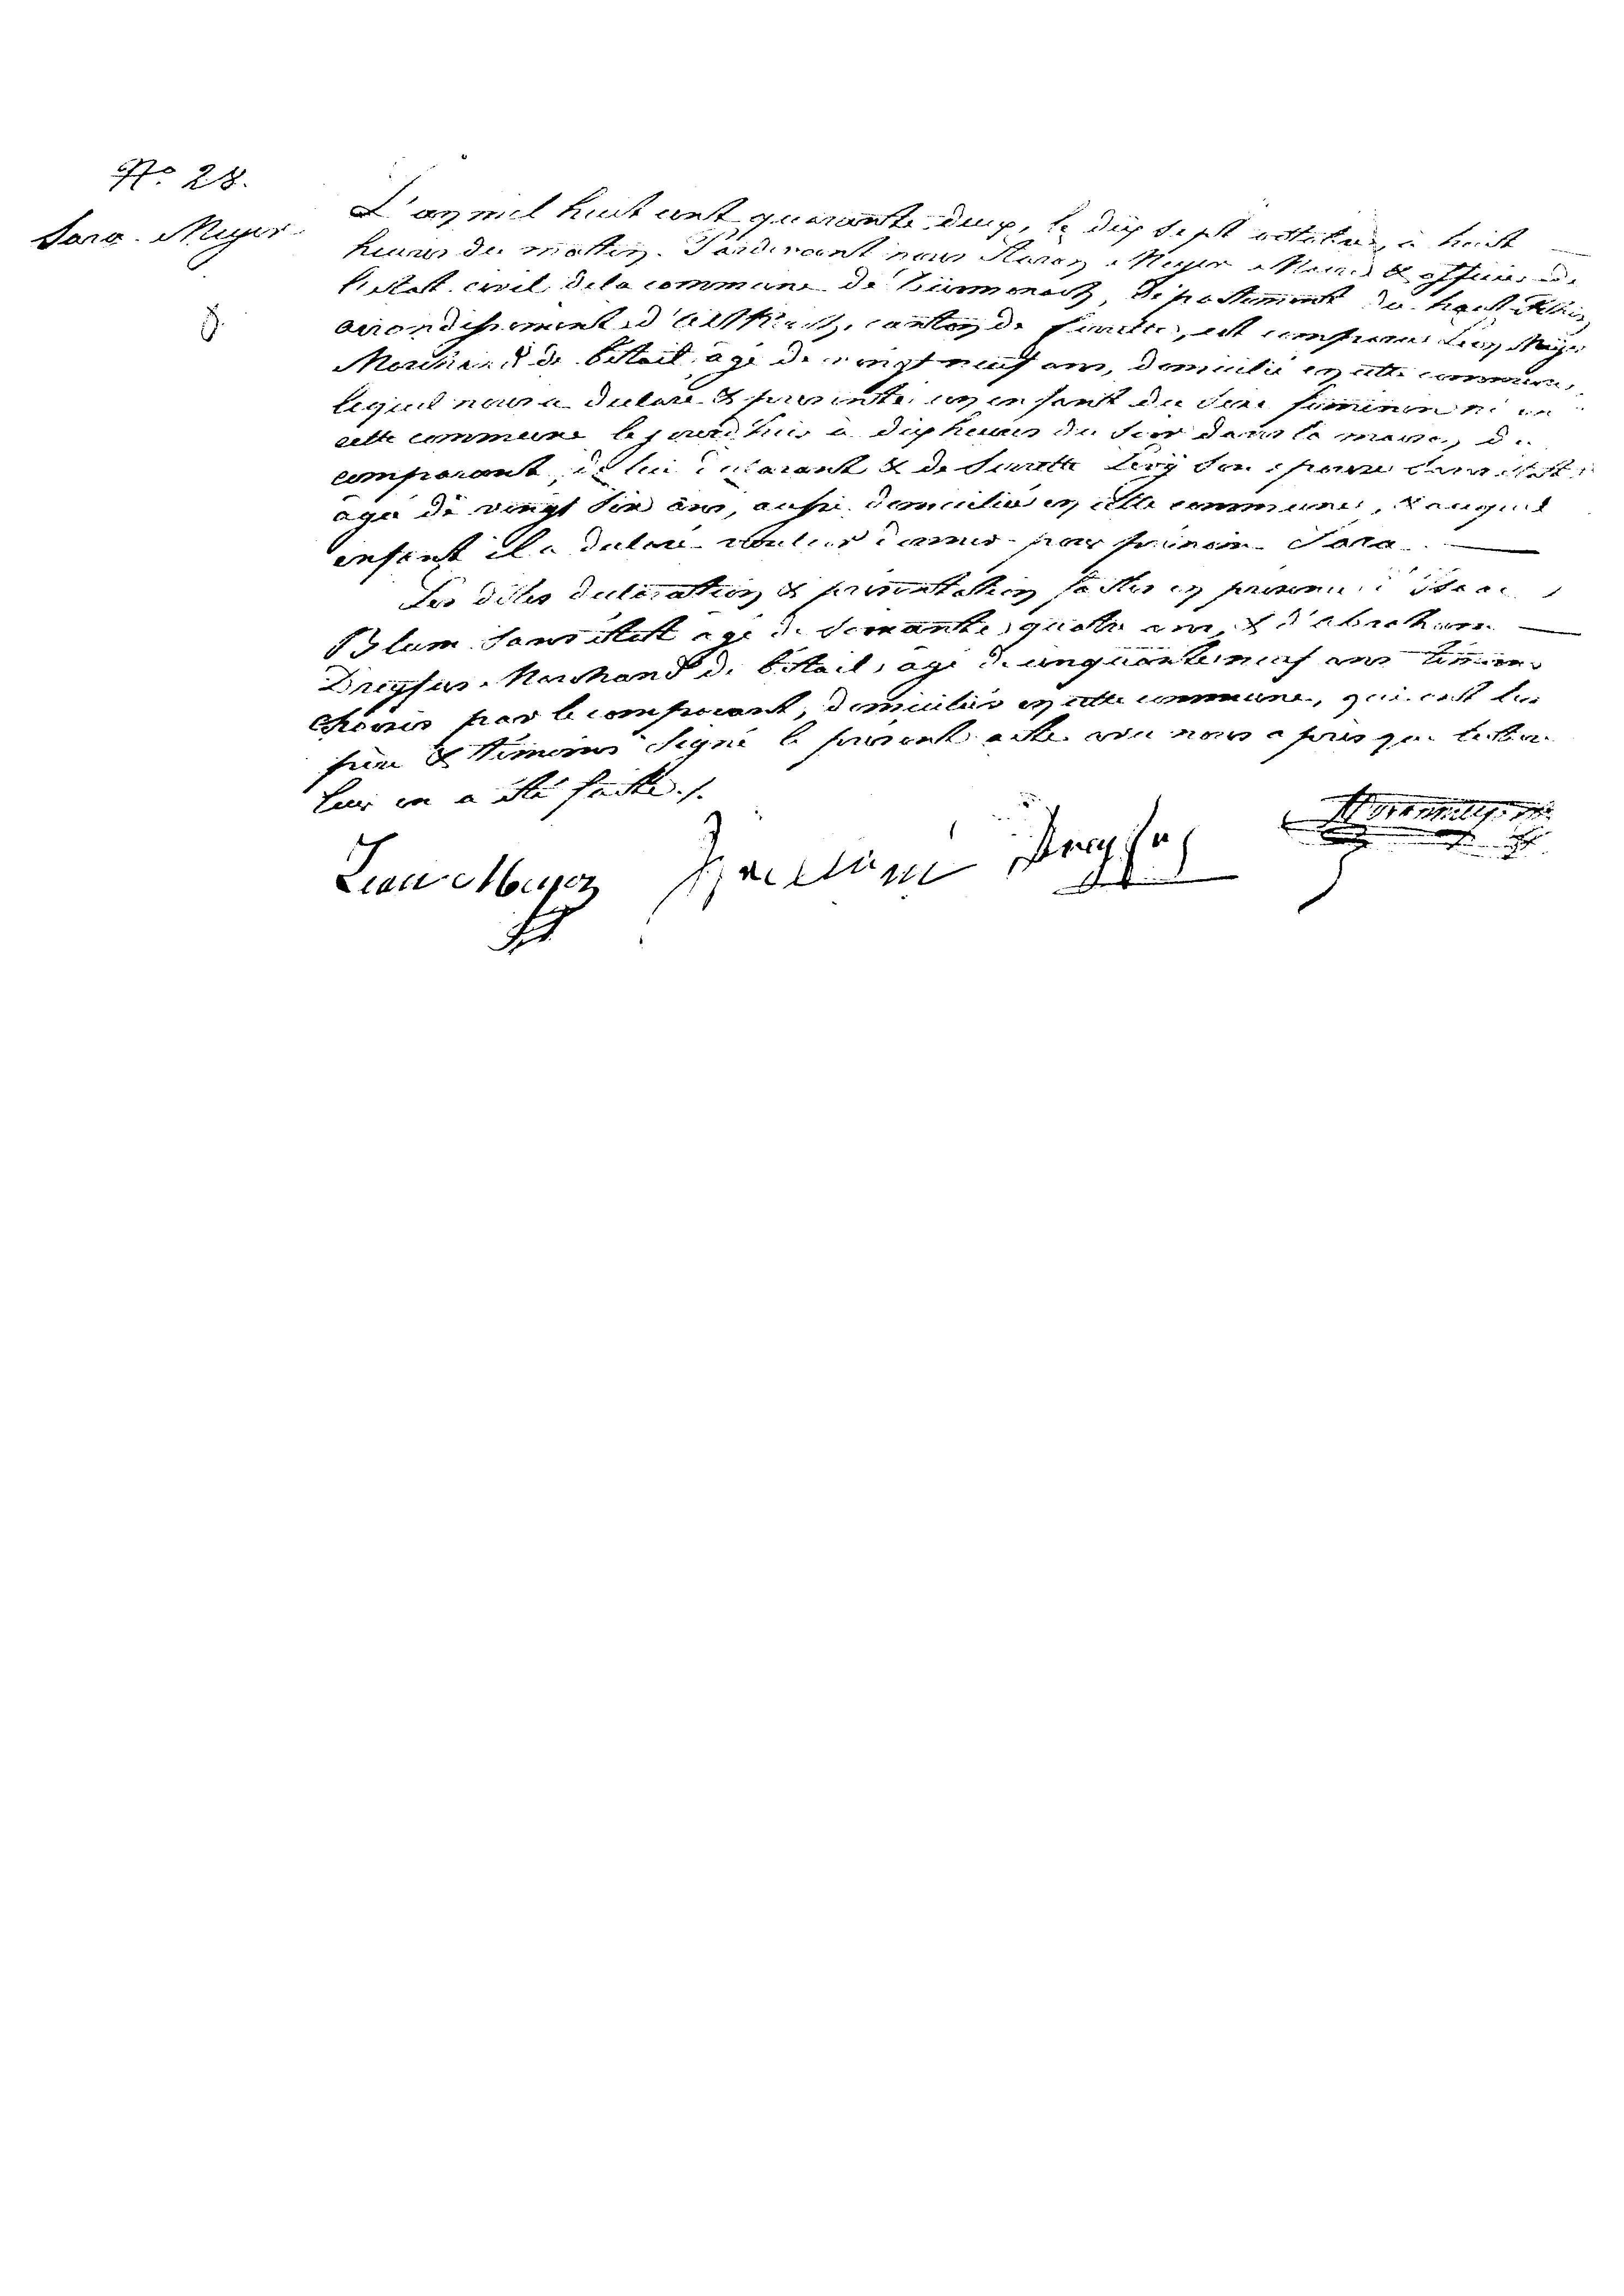 N.º 28.
Sara Meyer
L'an mil huit cent quarante deux, le dix sept octobre, à huit
heures du matin. Pardevant nous Aaron Meyer Maire & officier de
l'état civil de la commune de Dürmenach, département du haut Rhin,
arrondissement d'Altkirch, canton de ferrette, est comparu Leon Meyer
Marchand de bétail, agé de vingt neuf ans, domicilié en cette commune,
lequel nous a declaré & presenté un enfant du sexe feminin né en
cette commune le jourd'hui à dix heures du soir dans la maison du
comparant, de lui declarant & de Lévy son epouse sans état
agée de vingt six ans, aussi domiciliée en cette commune, & auquel
enfant il a declaré vouloir donner pour prénom Sara
Les dites declaration & presentation faites en presence d'Isaac
Blum sans état agé de soixante quatre ans & d'abraham
Dreyfus Marchand de bétail, agé de cinquante neuf ans témoins
choisis par le comparant, domiciliés en cette commune, qui ont les
père & témoins signé le présent acte avec nous après que lecture
leur en a été faite ./.
Leon Meyer
Dreyfus